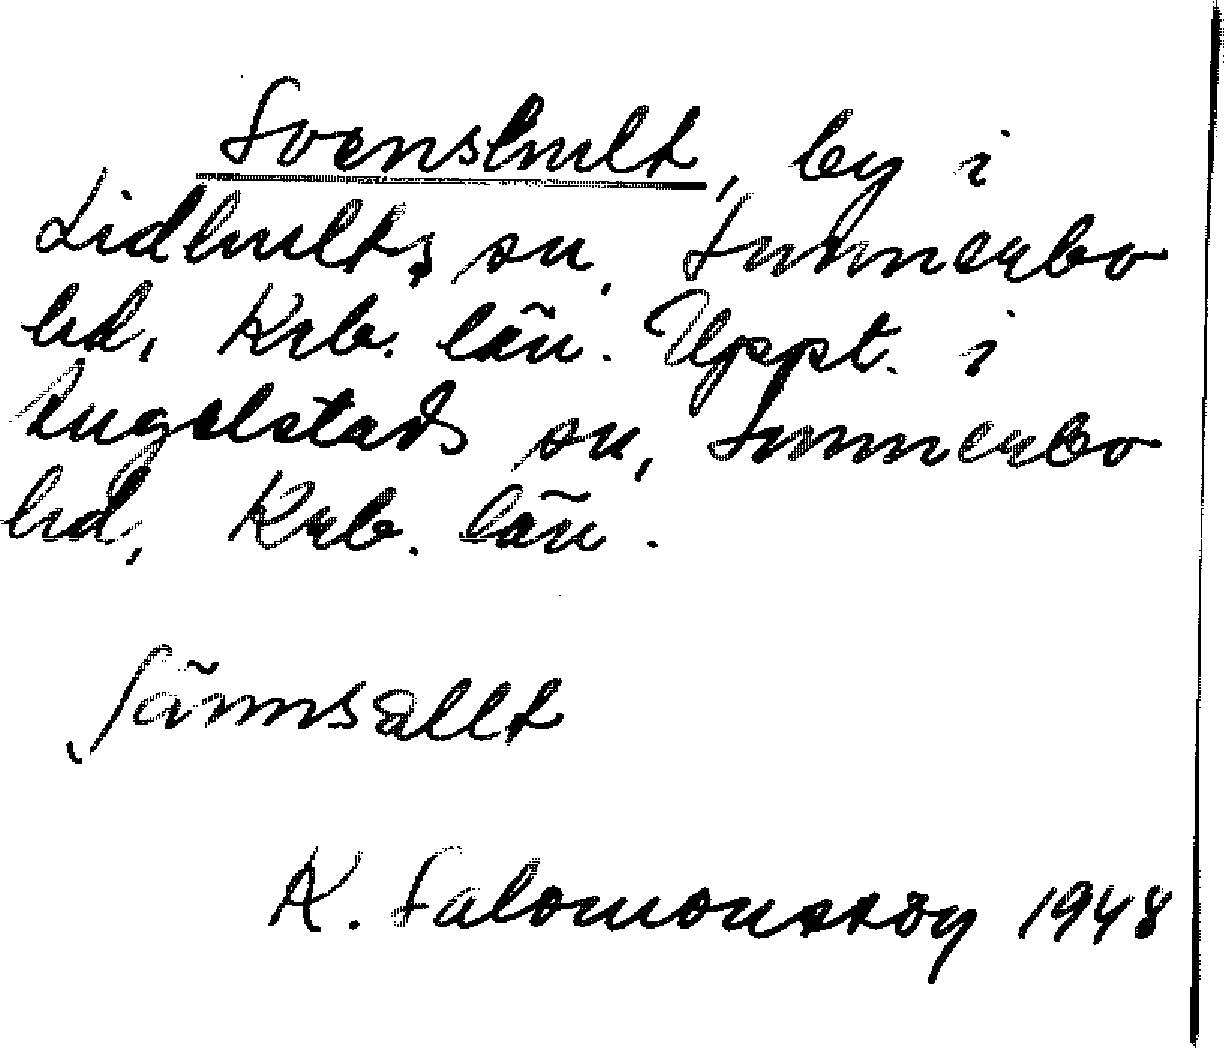 Svenshult, by i
Lidhults sn, Sunnerbo
hd, Krb. län. Uppt. i
Angelstads sn, Sunnerbo
hd, Krb. län.
K. Salomonsson 1948